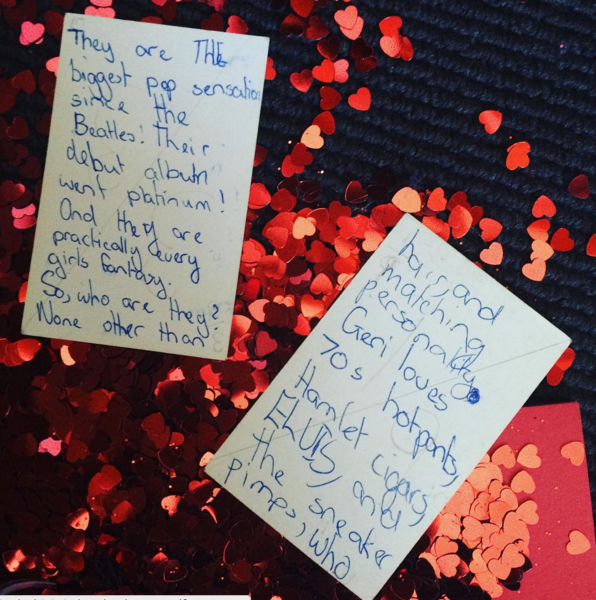 They are THE
biggest pop sensation
since the
Beatles! Their
debut album
went platinum!
And they are
practically every
girls fantasy.
So, who are they?
None other than
hair, and
matching
personality.
Geri loves
70s hotpants,
Hamlet cigars,
ELVIS, and
the sneaker
pimps, who